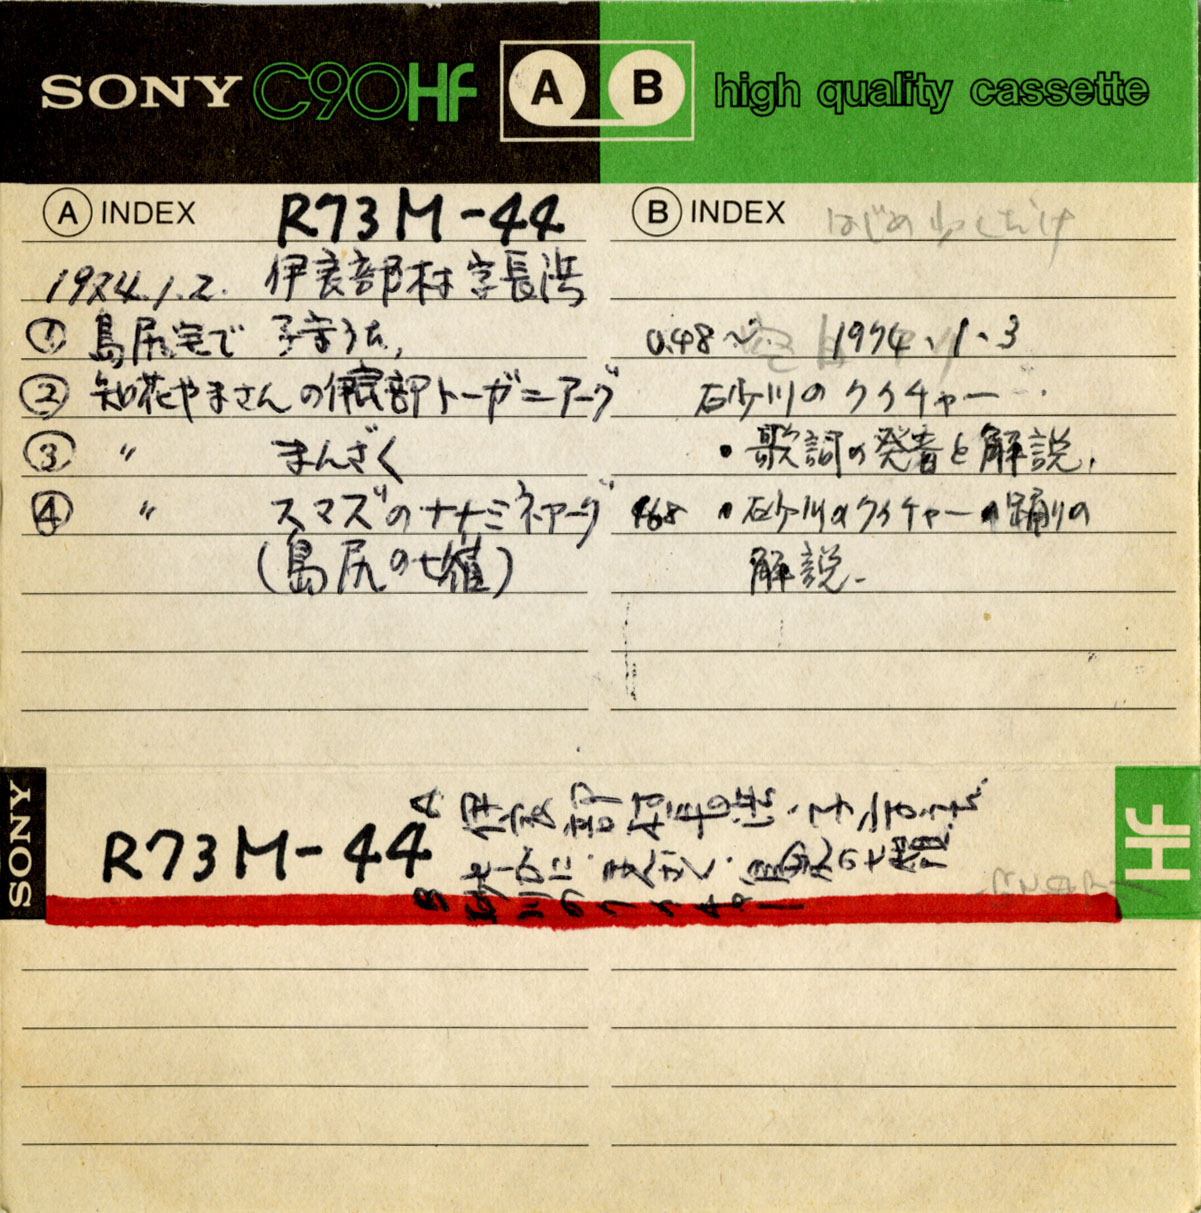 SONY C90HF A B high quality cassette
A INDEX R73M-44
1974.1.2. 伊良部村字長浜
① 島尻宅で 子守うた,
② 知花やまさんの伊良部トーガニアーグ
③ 〃 まんざく
④ 〃 スマズのナナミネアーグ
(島尻の七嶺)
B INDEX はじめ
0.48〜 1974.1.3
砂川のクイチャー
・歌詞の発音と解説.
468 ・砂川のクイチャーの踊りの
解説.
SONY
R73M-44
A 伊良部村長浜・子守うた.
トーガニ・まんざく・島尻の七嶺
B 砂川のクイチャー
HF